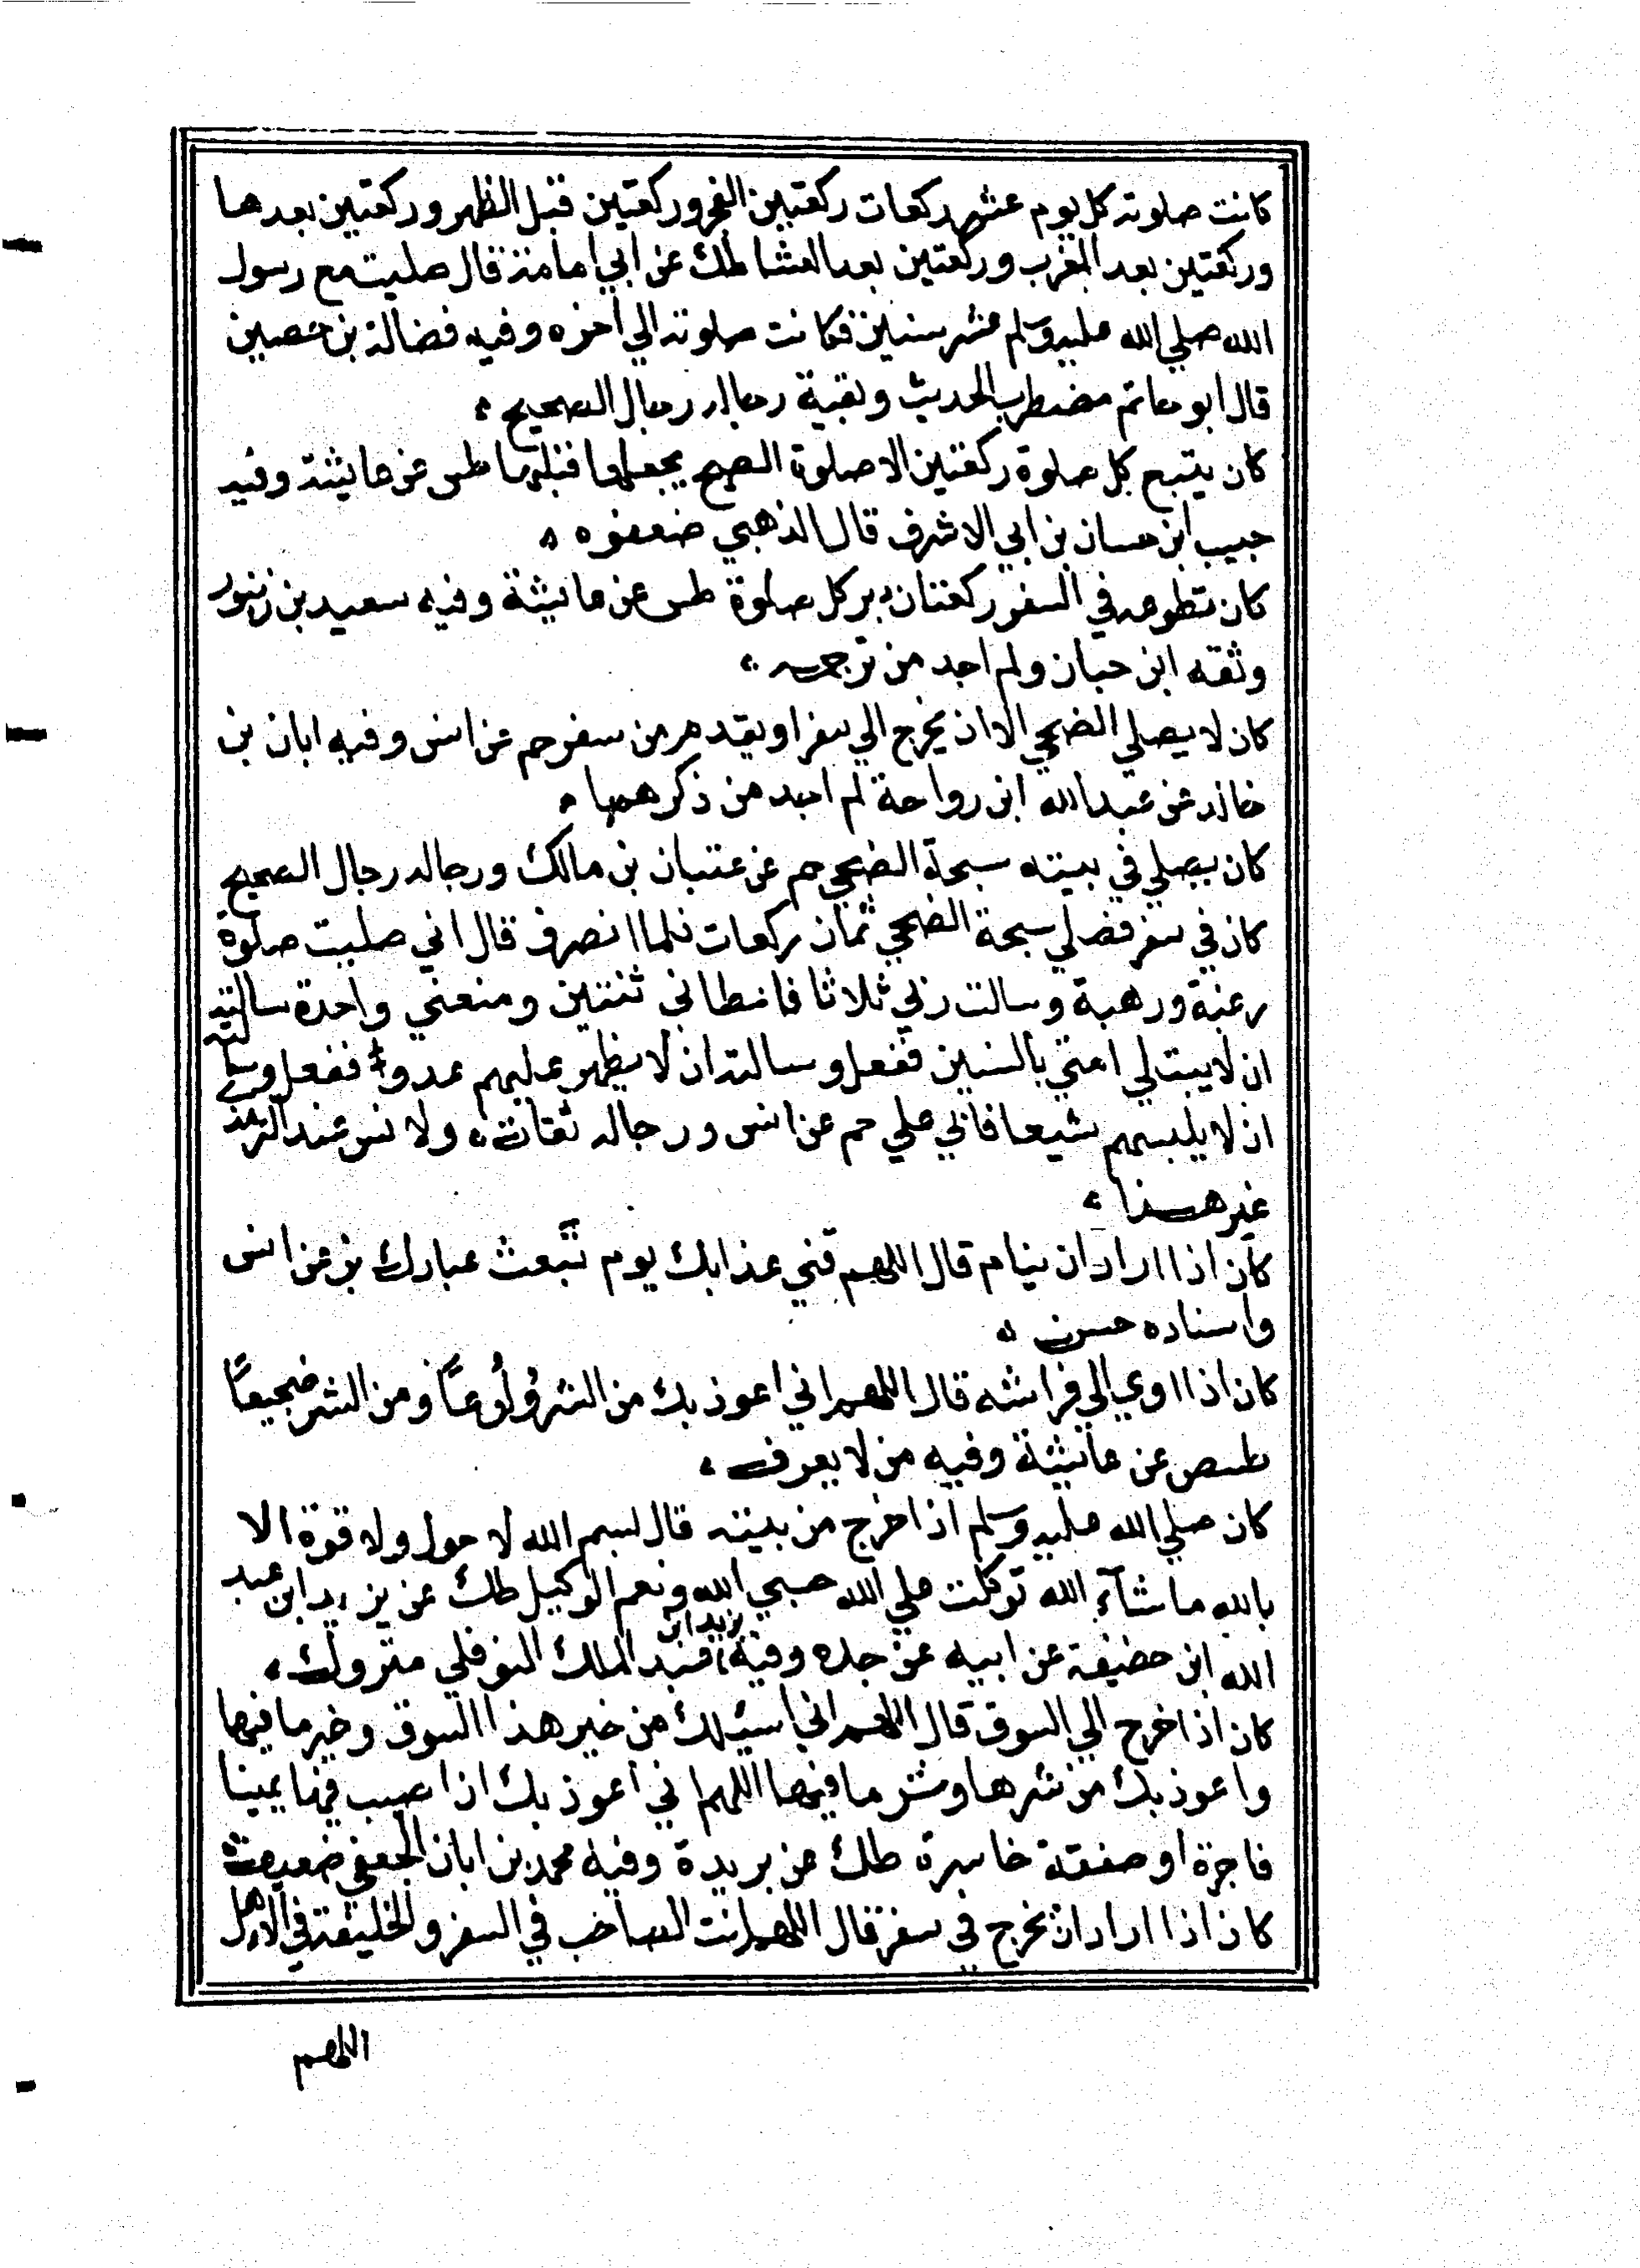 كانت صلوته كل يوم عشر ركعات ركعتين الفجر وركعتين قبل الظهر وركعتين بعدها
وركعتين بعد المغرب وركعتين بعد العشا طك عن ابي امامة قال صليت مع رسول
الله صلي الله عليه وسلم عشر سنين فكانت صلوته الي اخره وفيه فضالة بن حصين
قال ابو حاتم مضطرب الحديث وبقية رجاله رجال الصحيح
كان يتبع كل صلوة ركعتين الا صلوة الصبح يجعلها قبلها طس عن عايشة وفيه
حبيب ابن حسان بن ابي الاشرف قال الذهبي ضعفوه
كان تطوعه في السفر ركعتان دبر كل صلوة طس عن عايشة وفيه سعيد بن زنبور
وثقه ابن حبان ولم اجد من ترجمه
كان لا يصلي الضحي الا ان يخرج الي سفر او يقدم من سفر حم عن انس وفيه ابان بن
خالد عن عبد الله ابن رواحة لم اجد من ذكرهما
كان يصلي في بيته سبحة الضحي حم عن عتبان بن مالك ورجاله رجال الصحيح
كان في سفر فصلي سبحة الضحي ثمان ركعات فلما انصرف قال اني صليت صلوة
رغبة ورهبة وسالت ربي ثلاثا فاعطاني ثنتين ومنعني واحدة سالته
ان لا يبتلي امتي بالسنين ففعل وسالته ان لا يظهر عليهم عدوا ففعل وسالته
ان لا يلبسهم شيعا فابي علي حم عن انس ورجاله ثقات ولا نس عند
غير هذا
كان اذا اراد ان ينام قال اللهم قني عذابك يوم تبعث عبادك بز عن انس
واسناده حسن
كان اذا اوي الي فراشه قال اللهم اني اعوذ بك من الشر ولوعًا ومن الشر ضجيعًا
طسص عن عايشة وفيه من لا يعرف
كان صلي الله عليه وسلم اذا خرج من بيته قال بسم الله لا حول ولا قوة الا
بالله ما شآء الله توكلت علي الله حسبي الله ونعم الوكيل طك عن يزيد ابن عبد
الله ابن خصيفة عن ابيه عن جده وفيه يزيد ابن عبد الملك النوفلي متروك
كان اذا خرج الي السوق قال اللهم اني اسيلك من خير هذا السوق وخير ما فيها
واعوذ بك من شرها وشر ما فيها اللهم اني اعوذ بك ان اصيب فيها يمينا
فاجرة او صفقة خاسرة طك عن بريدة وفيه محمد بن ابان الجعفي ضعيف
كان اذا اراد ان يخرج في سفر قال اللهم انت الصاحب في السفر والخليفة في الاهل
اللهم